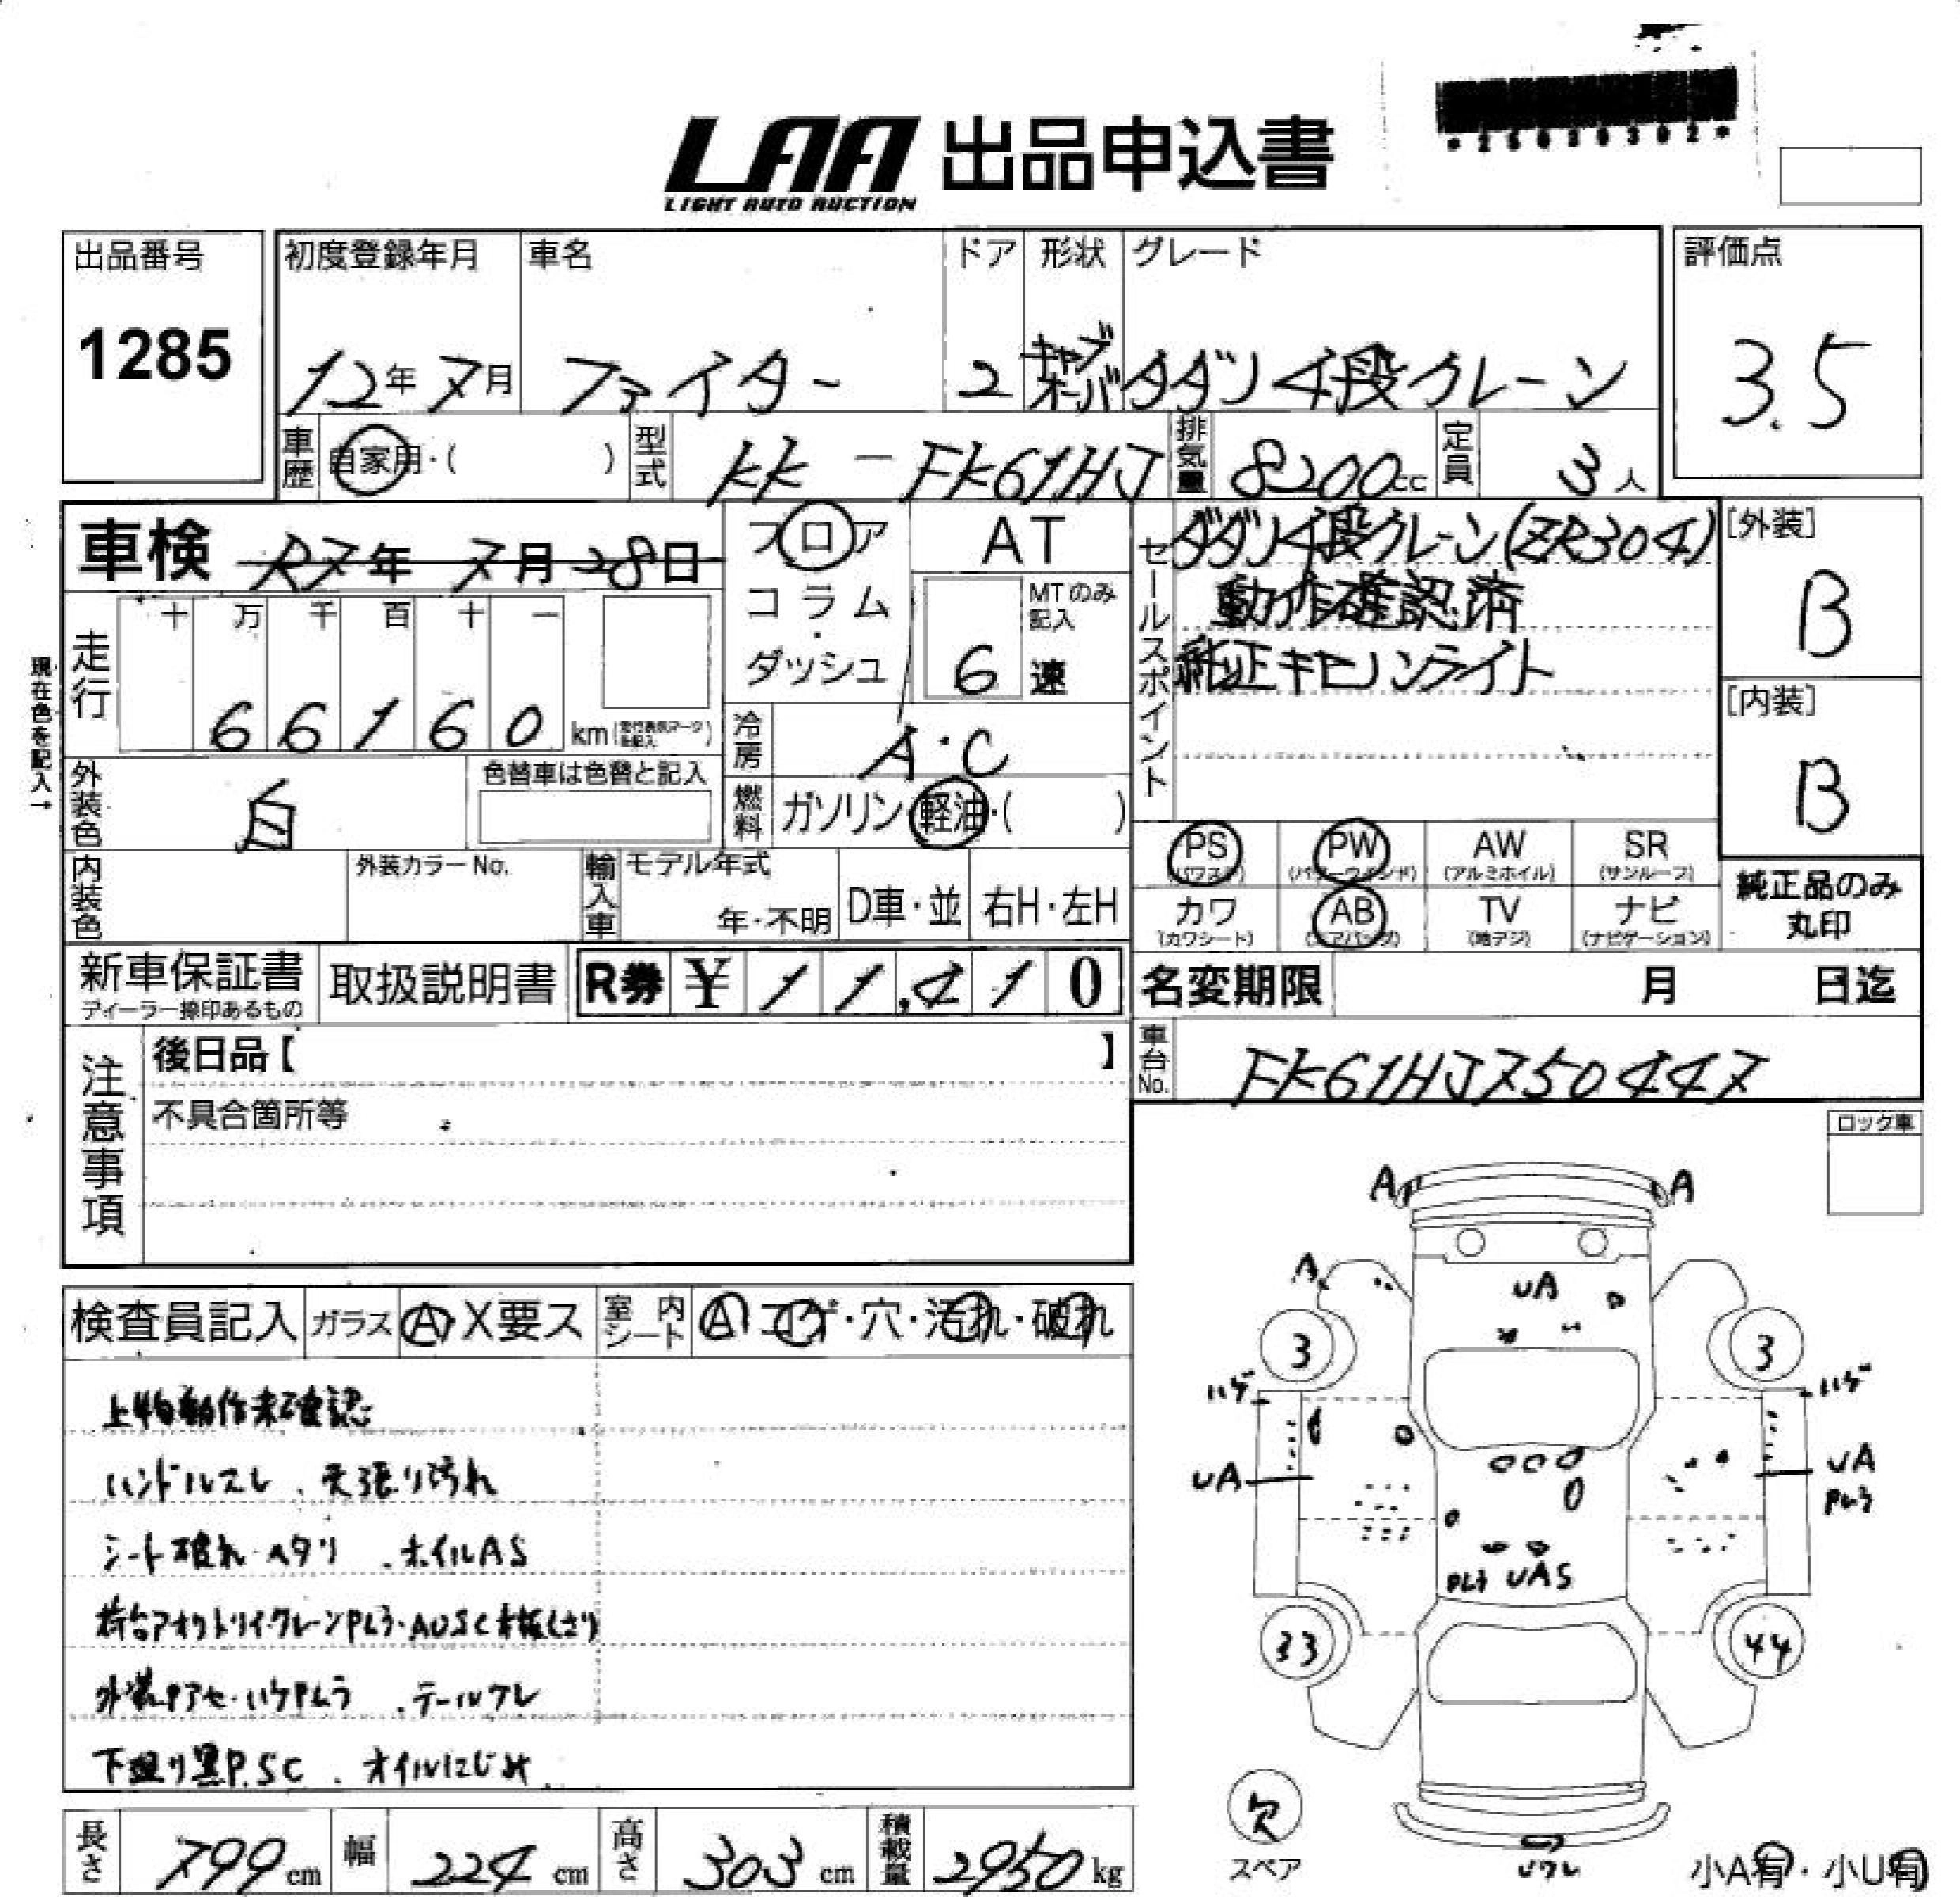 LAA 出品申込書
LIGHT AUTO AUCTION
*25020302*
出品番号
1285
初度登録年月
12年7月
車名
ファイター
ドア
2
形状
キャブオーバ
グレード
タダノ4段クレーン
評価点
3.5
車歴
自家用・( )
型式
KK-FK61HJ
排気量
8200cc
定員
3人
車検 R7年 7月28日
フロア
コラム
・
ダッシュ
AT
MTのみ記入
6速
セールスポイント
ダダノ4段クレーン(ZR304)
動作確認済
純正キセノンライト
[外装]
B
[内装]
B
現在色を記入→
走行
十 万 千 百 十 一
6 6 1 6 0 km
冷房
A・C
外装色
白
色替車は色替と記入
燃料
ガソリン・軽油・( )
内装色
外装カラーNo.
輸入車
モデル年式
年・不明
D車・並
右H・左H
PS
(パワステ)
PW
(パワーウインド)
AW
(アルミホイル)
SR
(サンルーフ)
カワ
(カワシート)
AB
(エアバッグ)
TV
(地デジ)
ナビ
(ナビゲーション)
純正品のみ
丸印
新車保証書
ディーラー捺印あるもの
取扱説明書
R券 ¥11,410
名変期限 月 日迄
車台No.
FK61HJ750447
注意事項
後日品【 】
不具合箇所等
ロック車
検査員記入
ガラス
A X要ス
室内シート
A コゲ・穴・汚れ・破れ
上物動作未確認
ハンドルスレ、天張り汚れ
シート破れ・ヘタリ、ホイルAS
荷台アオリトリイ・クレーンPムラ・AUSC木板くさり
外装Pアセ・ハゲPムラ、テールワレ
下廻り黒P.SC、オイルにじみ
A A
A
UA
3 3
ハゲ ハゲ
UA
UA
Pムラ
Pムラ UAS
33 44
欠
スペア
Uワレ
小A有・小U有
長さ
799cm
幅
224cm
高さ
303cm
積載量
2950kg